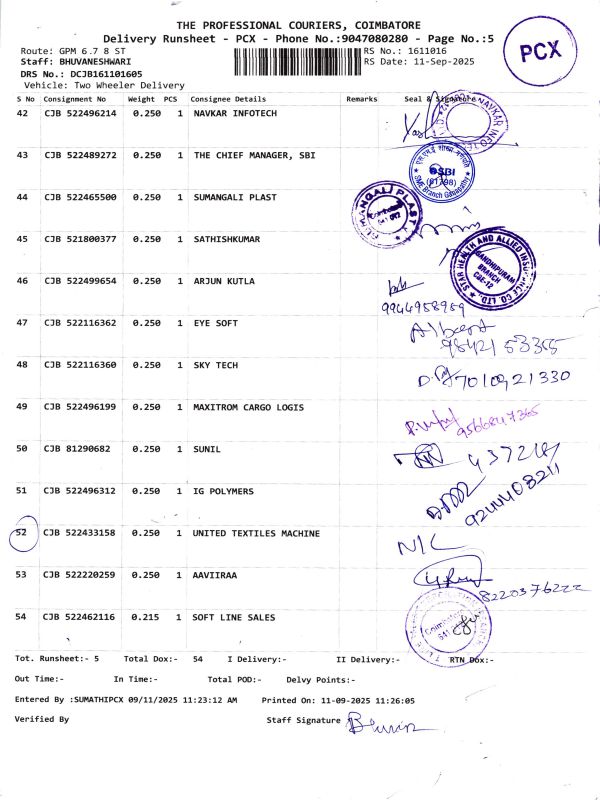 THE PROFESSIONAL COURIERS, COIMBATORE
Delivery Runsheet - PCX - Phone No.:9047080280 - Page No.:5
PCX
Route: GPM 6.7 8 ST RS No.: 1611016
Staff: BHUVANESHWARI RS Date: 11-Sep-2025
DRS No.: DCJB161101605
Vehicle: Two Wheeler Delivery
S No Consignment No Weight PCS Consignee Details Remarks Seal & Signature
42 CJB 522496214 0.250 1 NAVKAR INFOTECH
43 CJB 522489272 0.250 1 THE CHIEF MANAGER, SBI
SBI
44 CJB 522465500 0.250 1 SUMANGALI PLAST
SUMANGALI PLAST
45 CJB 521800377 0.250 1 SATHISHKUMAR
STAR HEALTH AND ALLIED INSURANCE CO. LTD.,
GANDHIPURAM
BRANCH
CBE-12
46 CJB 522499654 0.250 1 ARJUN KUTLA
9944958959
47 CJB 522116362 0.250 1 EYE SOFT
48 CJB 522116360 0.250 1 SKY TECH
7010921330
49 CJB 522496199 0.250 1 MAXITROM CARGO LOGIS
9566847365
50 CJB 81290682 0.250 1 SUNIL
51 CJB 522496312 0.250 1 IG POLYMERS
9244408211
52 CJB 522433158 0.250 1 UNITED TEXTILES MACHINE N/C
53 CJB 522220259 0.250 1 AAVIIRAA
8220376222
54 CJB 522462116 0.215 1 SOFT LINE SALES
Coimbatore
Tot. Runsheet:- 5 Total Dox:- 54 I Delivery:- II Delivery:- RTN Dox:-
Out Time:- In Time:- Total POD:- Delvy Points:-
Entered By :SUMATHIPCX 09/11/2025 11:23:12 AM Printed On: 11-09-2025 11:26:05
Verified By Staff Signature